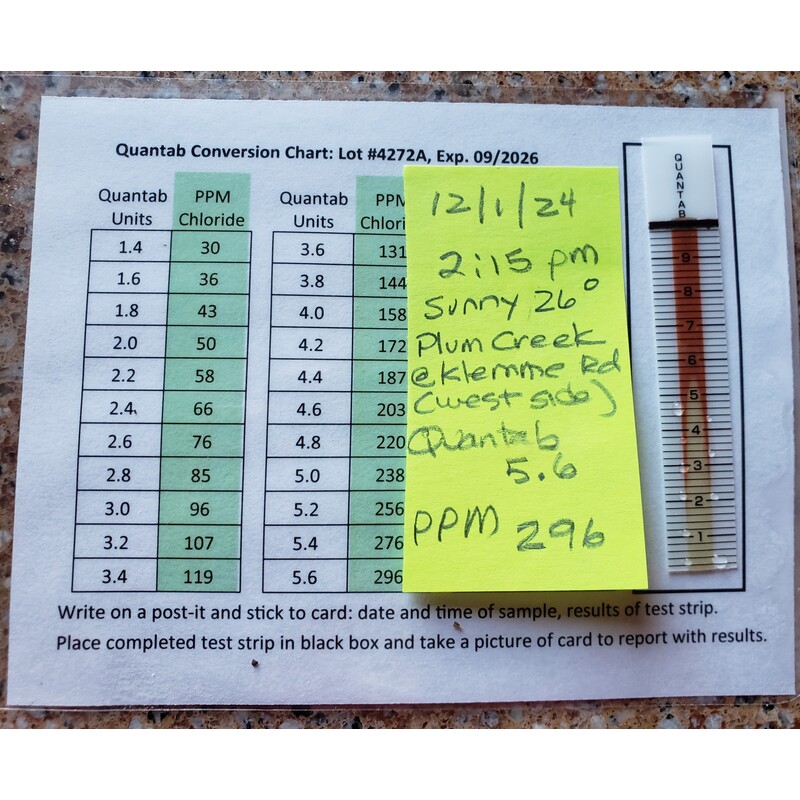 Quantab Conversion Chart: Lot #4272A, Exp. 09/2026
Quantab Units PPM Chloride
1.4 30
1.6 36
1.8 43
2.0 50
2.2 58
2.4 66
2.6 76
2.8 85
3.0 96
3.2 107
3.4 119
Quantab Units PPM Chlori
3.6 131
3.8 144
4.0 158
4.2 172
4.4 187
4.6 203
4.8 220
5.0 238
5.2 256
5.4 276
5.6 296
12/1/24
2:15 pm
Sunny 26°
Plum Creek
@ Klemme Rd
(west side)
Quantab
5.6
PPM 296
QUANTAB
9
8
7
6
5
4
3
2
1
Write on a post-it and stick to card: date and time of sample, results of test strip.
Place completed test strip in black box and take a picture of card to report with results.